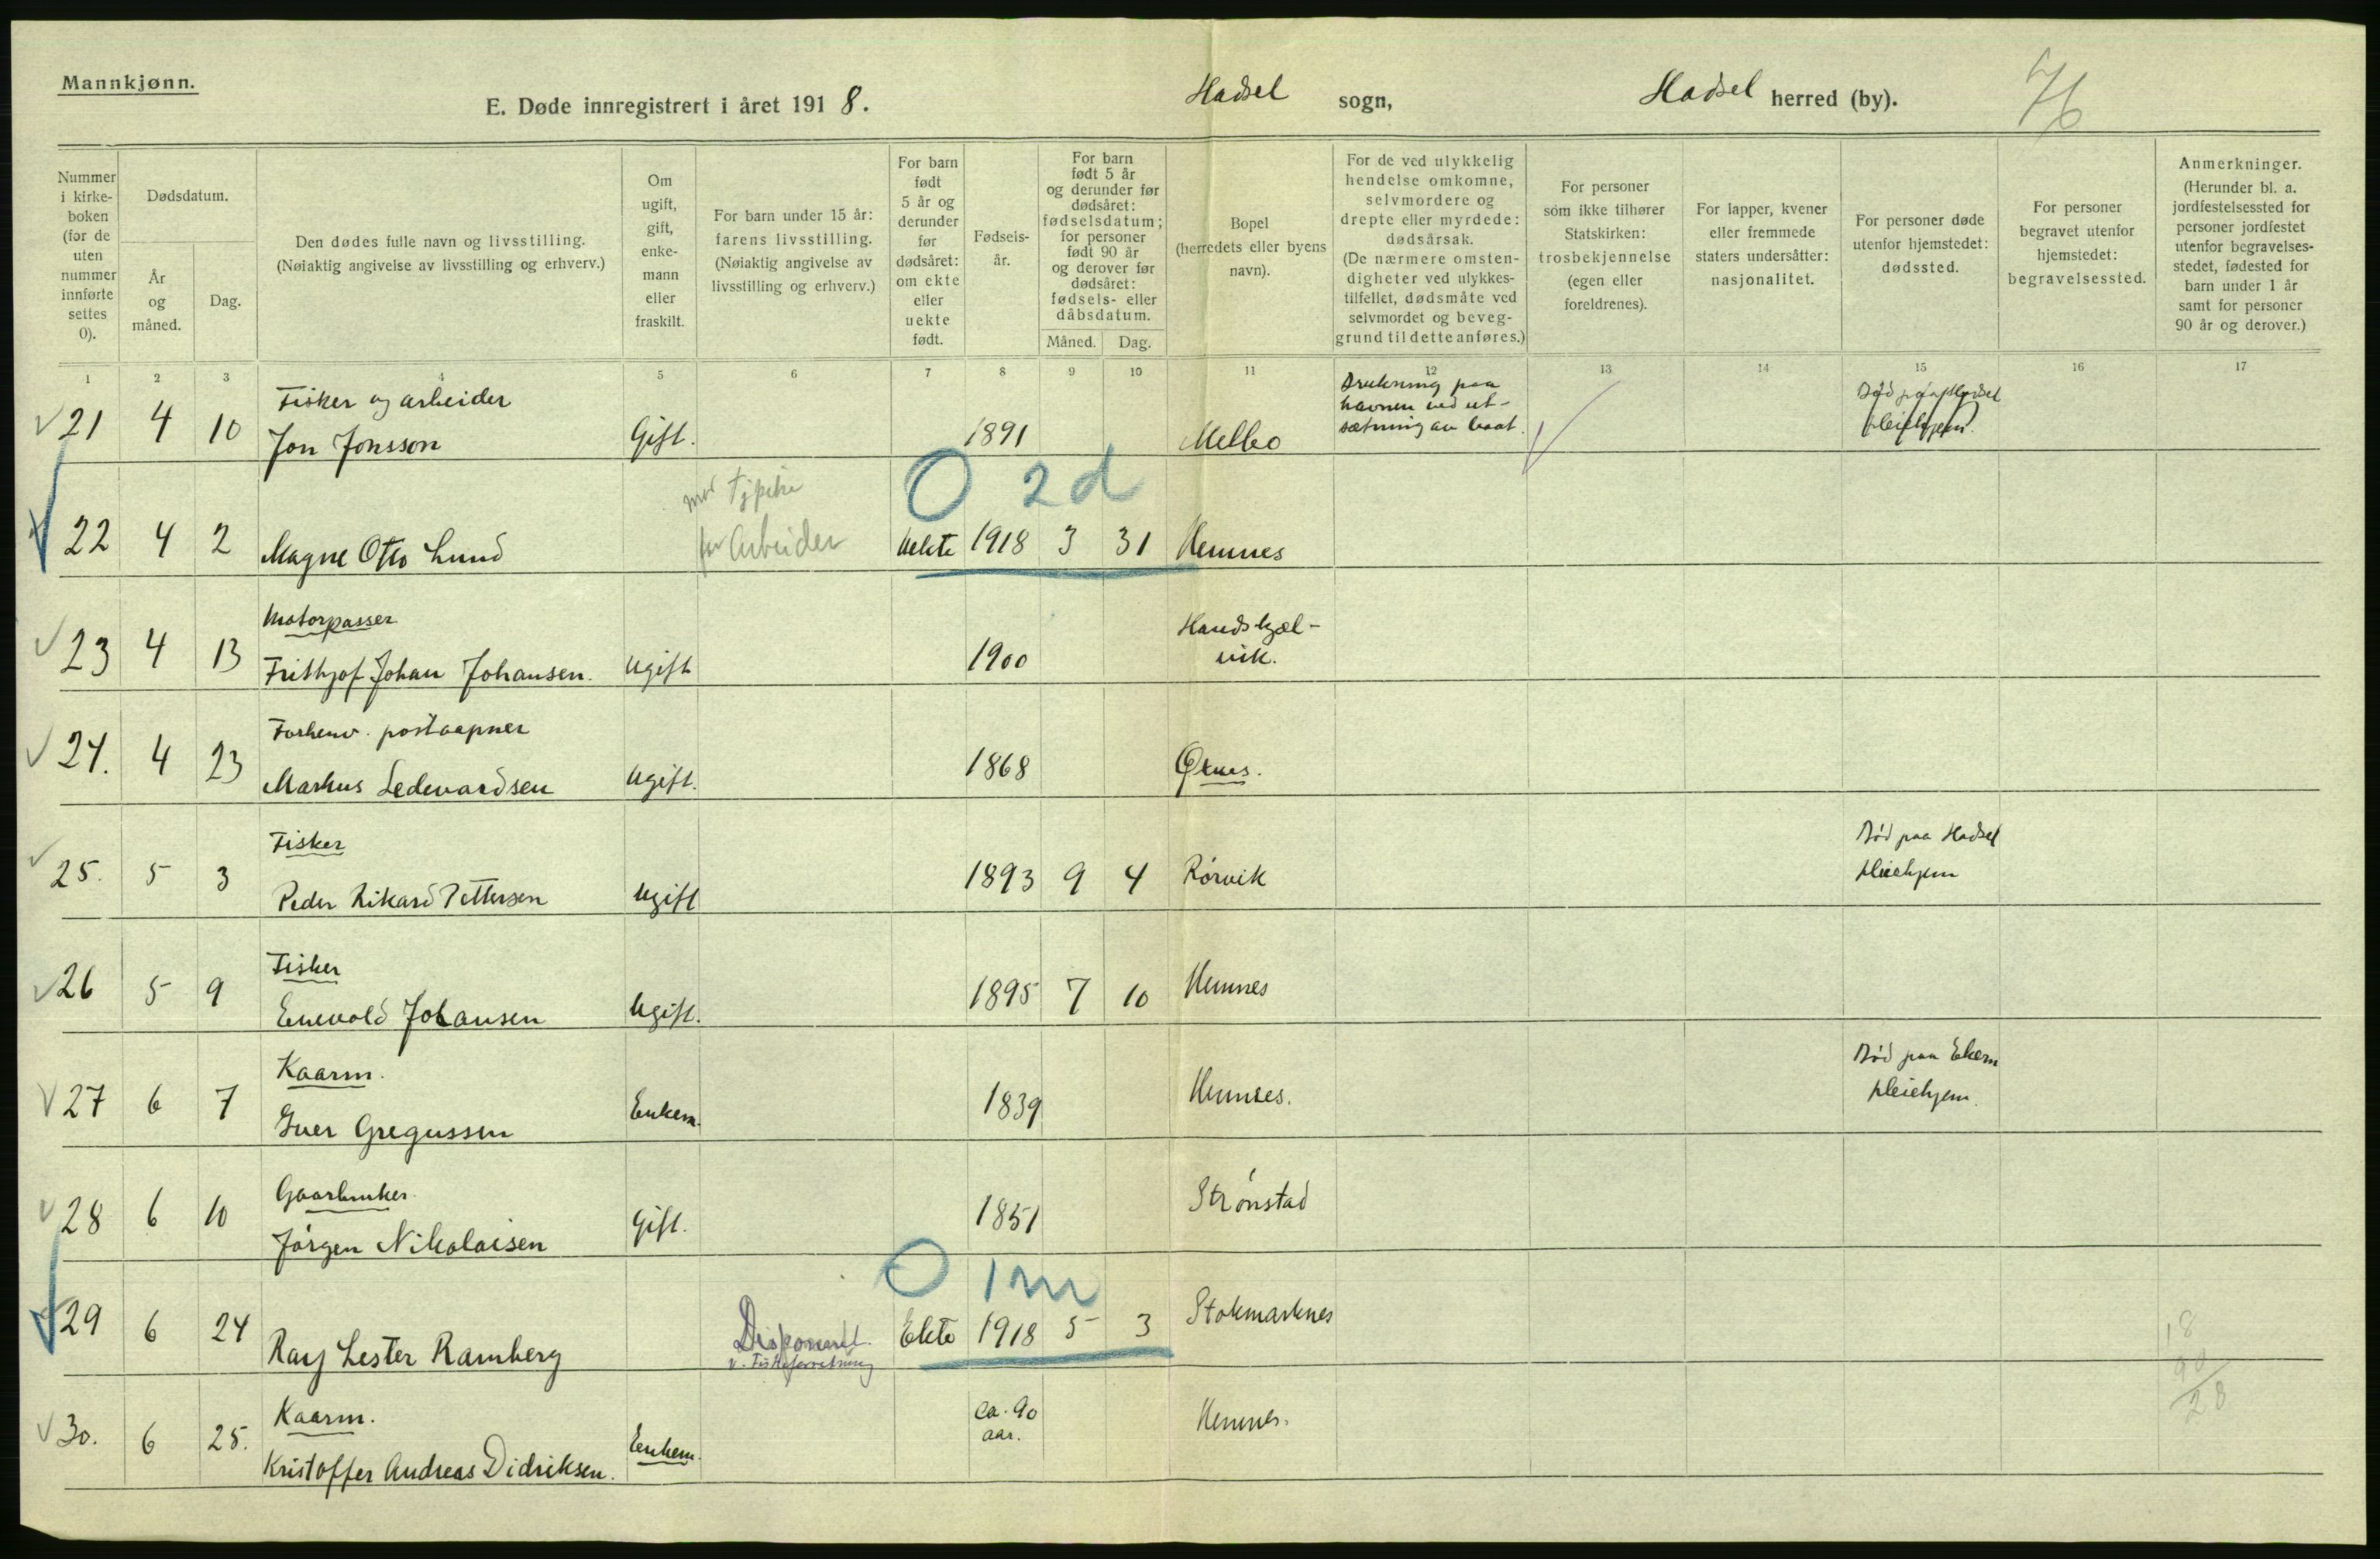 Mannkjønn.
E. Døde innregistrert i året 1918.
Hadsel sogn,
Hadsel herred (by).
76
Nummer i kirke-boken (for de uten nummer innførte settes 0).
Dødsdatum.
År og måned.
Dag.
Den dødes fulle navn og livsstilling.
(Nøiaktig angivelse av livsstilling og erhverv.)
Om ugift, gift, enke-mann eller fraskilt.
For barn under 15 år: farens livsstilling. (Nøiaktig angivelse av livsstilling og erhverv.)
For barn født 5 år og derunder før dødsåret: om ekte eller uekte født.
Fødsels-år.
For barn født 5 år og derunder før dødsåret: fødselsdatum; for personer født 90 år og derover før dødsåret: fødsels- eller dåbsdatum.
Måned. Dag.
Bopel (herredets eller byens navn).
For de ved ulykkelig hendelse omkomne, selvmordere og drepte eller myrdede: dødsårsak. (De nærmere omsten-digheter ved ulykkes-tilfellet, dødsmåte ved selvmordet og beveg-grund til dette anføres.)
For personer som ikke tilhører Statskirken: trosbekjennelse (egen eller foreldrenes).
For lapper, kvener eller fremmede staters undersåtter: nasjonalitet.
For personer døde utenfor hjemstedet: dødssted.
For personer begravet utenfor hjemstedet: begravelsessted.
Anmerkninger. (Herunder bl. a. jordfestelsessted for personer jordfestet utenfor begravelses-stedet, fødested for barn under 1 år samt for personer 90 år og derover.)
1 2 3 4 5 6 7 8 9 10 11 12 13 14 15 16 17
Fisker og arbeider
21 4 10 Jon Jonsson Gift. 1891 Melbo
Drukning paa
havnen ved ut-
sætning av baat.
Død paa Hadsel
pleiehjem.
O 2d
mor Tjpike
far Arbeider
22 4 2 Magne Otto Lund Uekte 1918 3 31 Hemnes
Motorpasser
23 4 13 Frithjof Johan Johansen. Ugift 1900
Handskjæl-
vik.
Forhenv. postaapner
24. 4 23 Markus Ledevardsen Ugift. 1868 Øknes.
Fisker
25. 5 3 Peder Rikard Pettersen Ugift 1893 9 4 Rørvik
Død paa Hadsel
pleiehjem
Fisker
26 5 9 Enevold Johansen Ugift. 1895 7 10 Hemnes
Kaarm.
27 6 7 Iver Gregussen Enkem. 1839 Hemnes.
Død paa Ekern
pleiehjem.
Gaarbruker.
28 6 10 Jørgen Nikolaisen Gift. 1851 Strønstad
O 1m
29 6 24 Ray Lester Ramberg Disponent. Ekte 1918 5 3 Stokmarknes
v. Fiskeforretning
Kaarm.
30. 6 25. Kristoffer Andreas Didriksen. Enkem.
ca. 90
aar.
Hemnes.
18
90
28